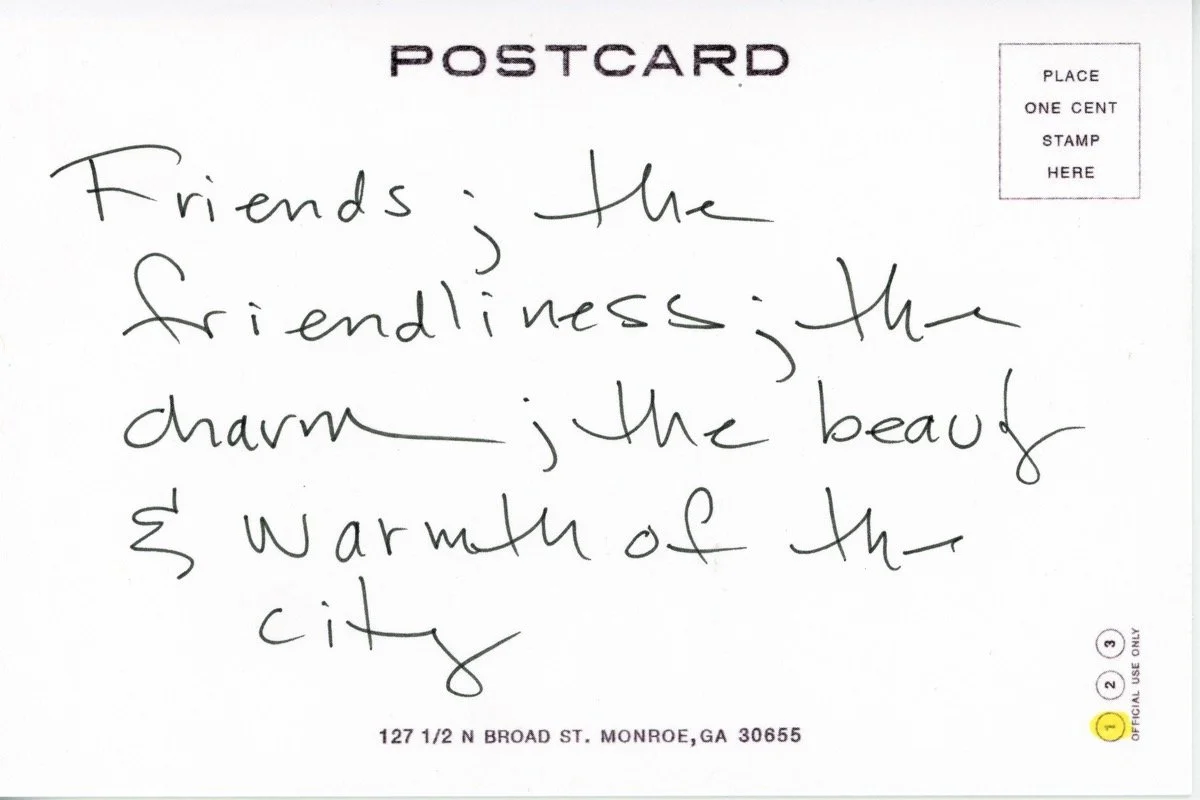 POSTCARD
PLACE
ONE CENT
STAMP
HERE
Friends; the
friendliness; the
charm; the beauty
& warmth of the
city
127 1/2 N BROAD ST. MONROE, GA 30655
1 2 3
OFFICIAL USE ONLY